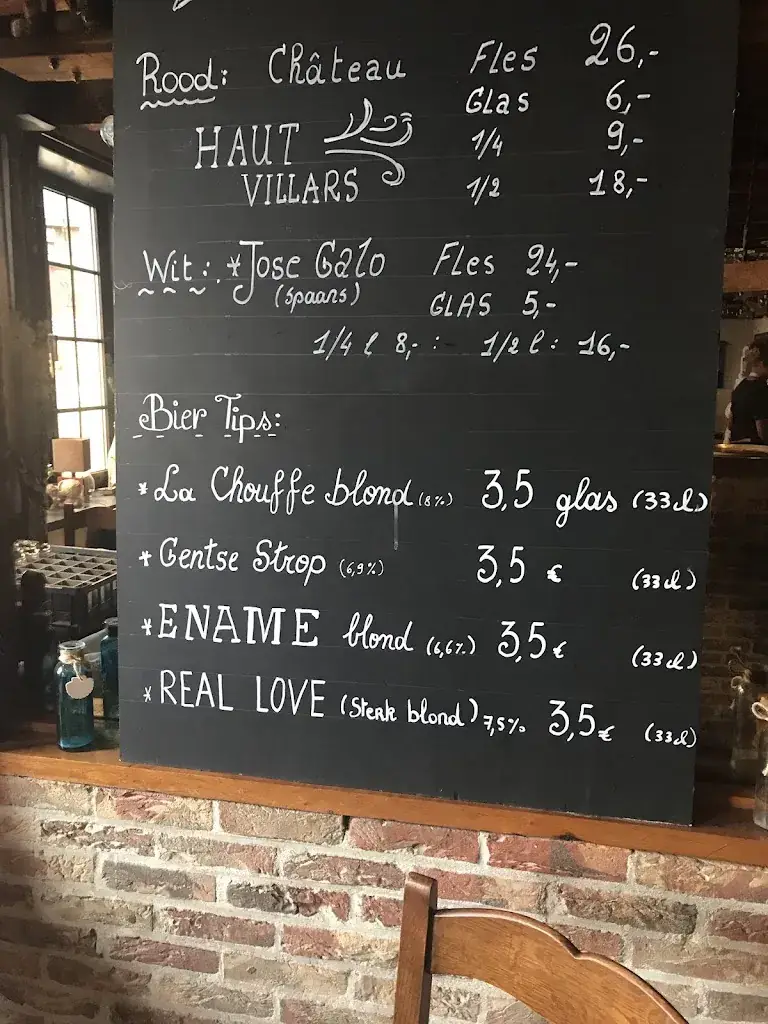 Rood: Château Fles 26,-
Glas 6,-
HAUT 1/4 9,-
VILLARS 1/2 18,-
Wit: *Jose Galo Fles 24,-
(Spaans) GLAS 5,-
1/4 l 8,- : 1/2 l : 16,-
Bier Tips:
*La Chouffe blond (8%) 3,5 glas (33cl)
*Gentse Strop (6,9%) 3,5 € (33cl)
*ENAME blond (6,6%) 3,5€ (33cl)
*REAL LOVE (Sterk blond) 7,5% 3,5€ (33cl)